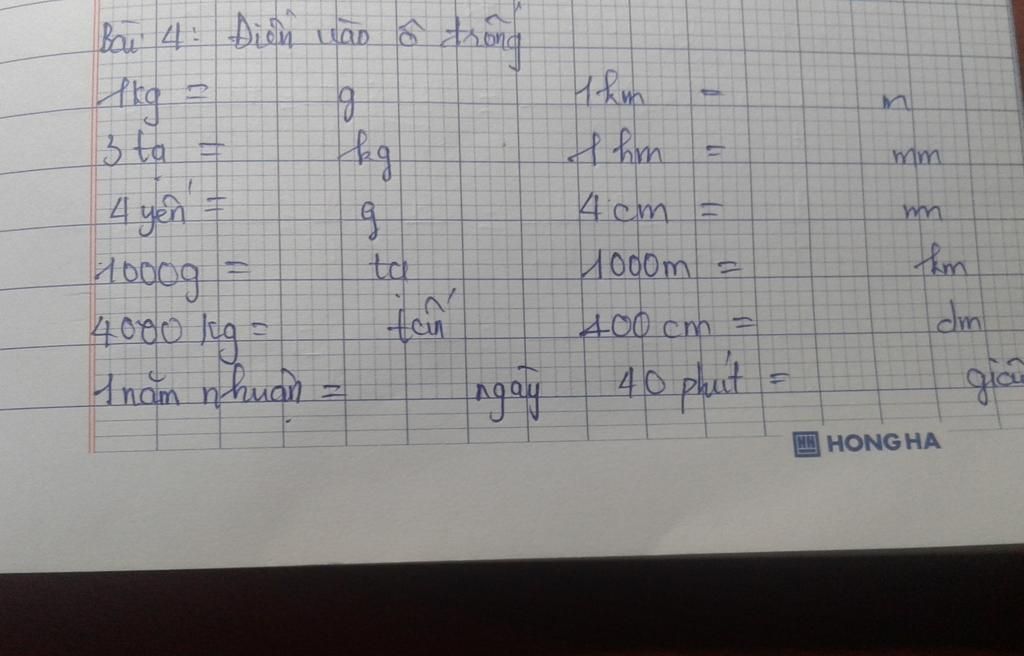 Bài 4: Điền vào ô trống
1kg = g 1km = m
3 tạ = kg 1 hm = mm
4 yến = g 4 cm = mm
1000g = tạ 1000m = km
4000 kg = tấn 400 cm = dm
1 năm nhuận = ngày 40 phút =
HONG HA